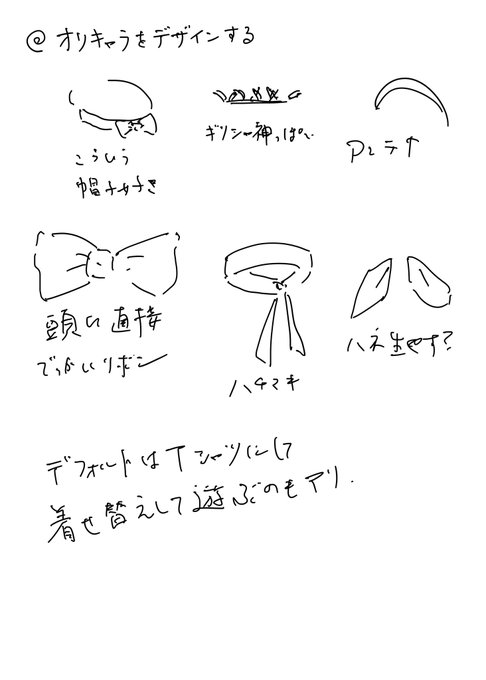 @ オリキャラをデザインする
こういう
帽子好き
ギリシャ神っぽい
頭に直接
でっかいリボン
ハチマキ
ハネ生やす?
デフォルトはTシャツにして
着せ替えして遊ぶのもアリ.